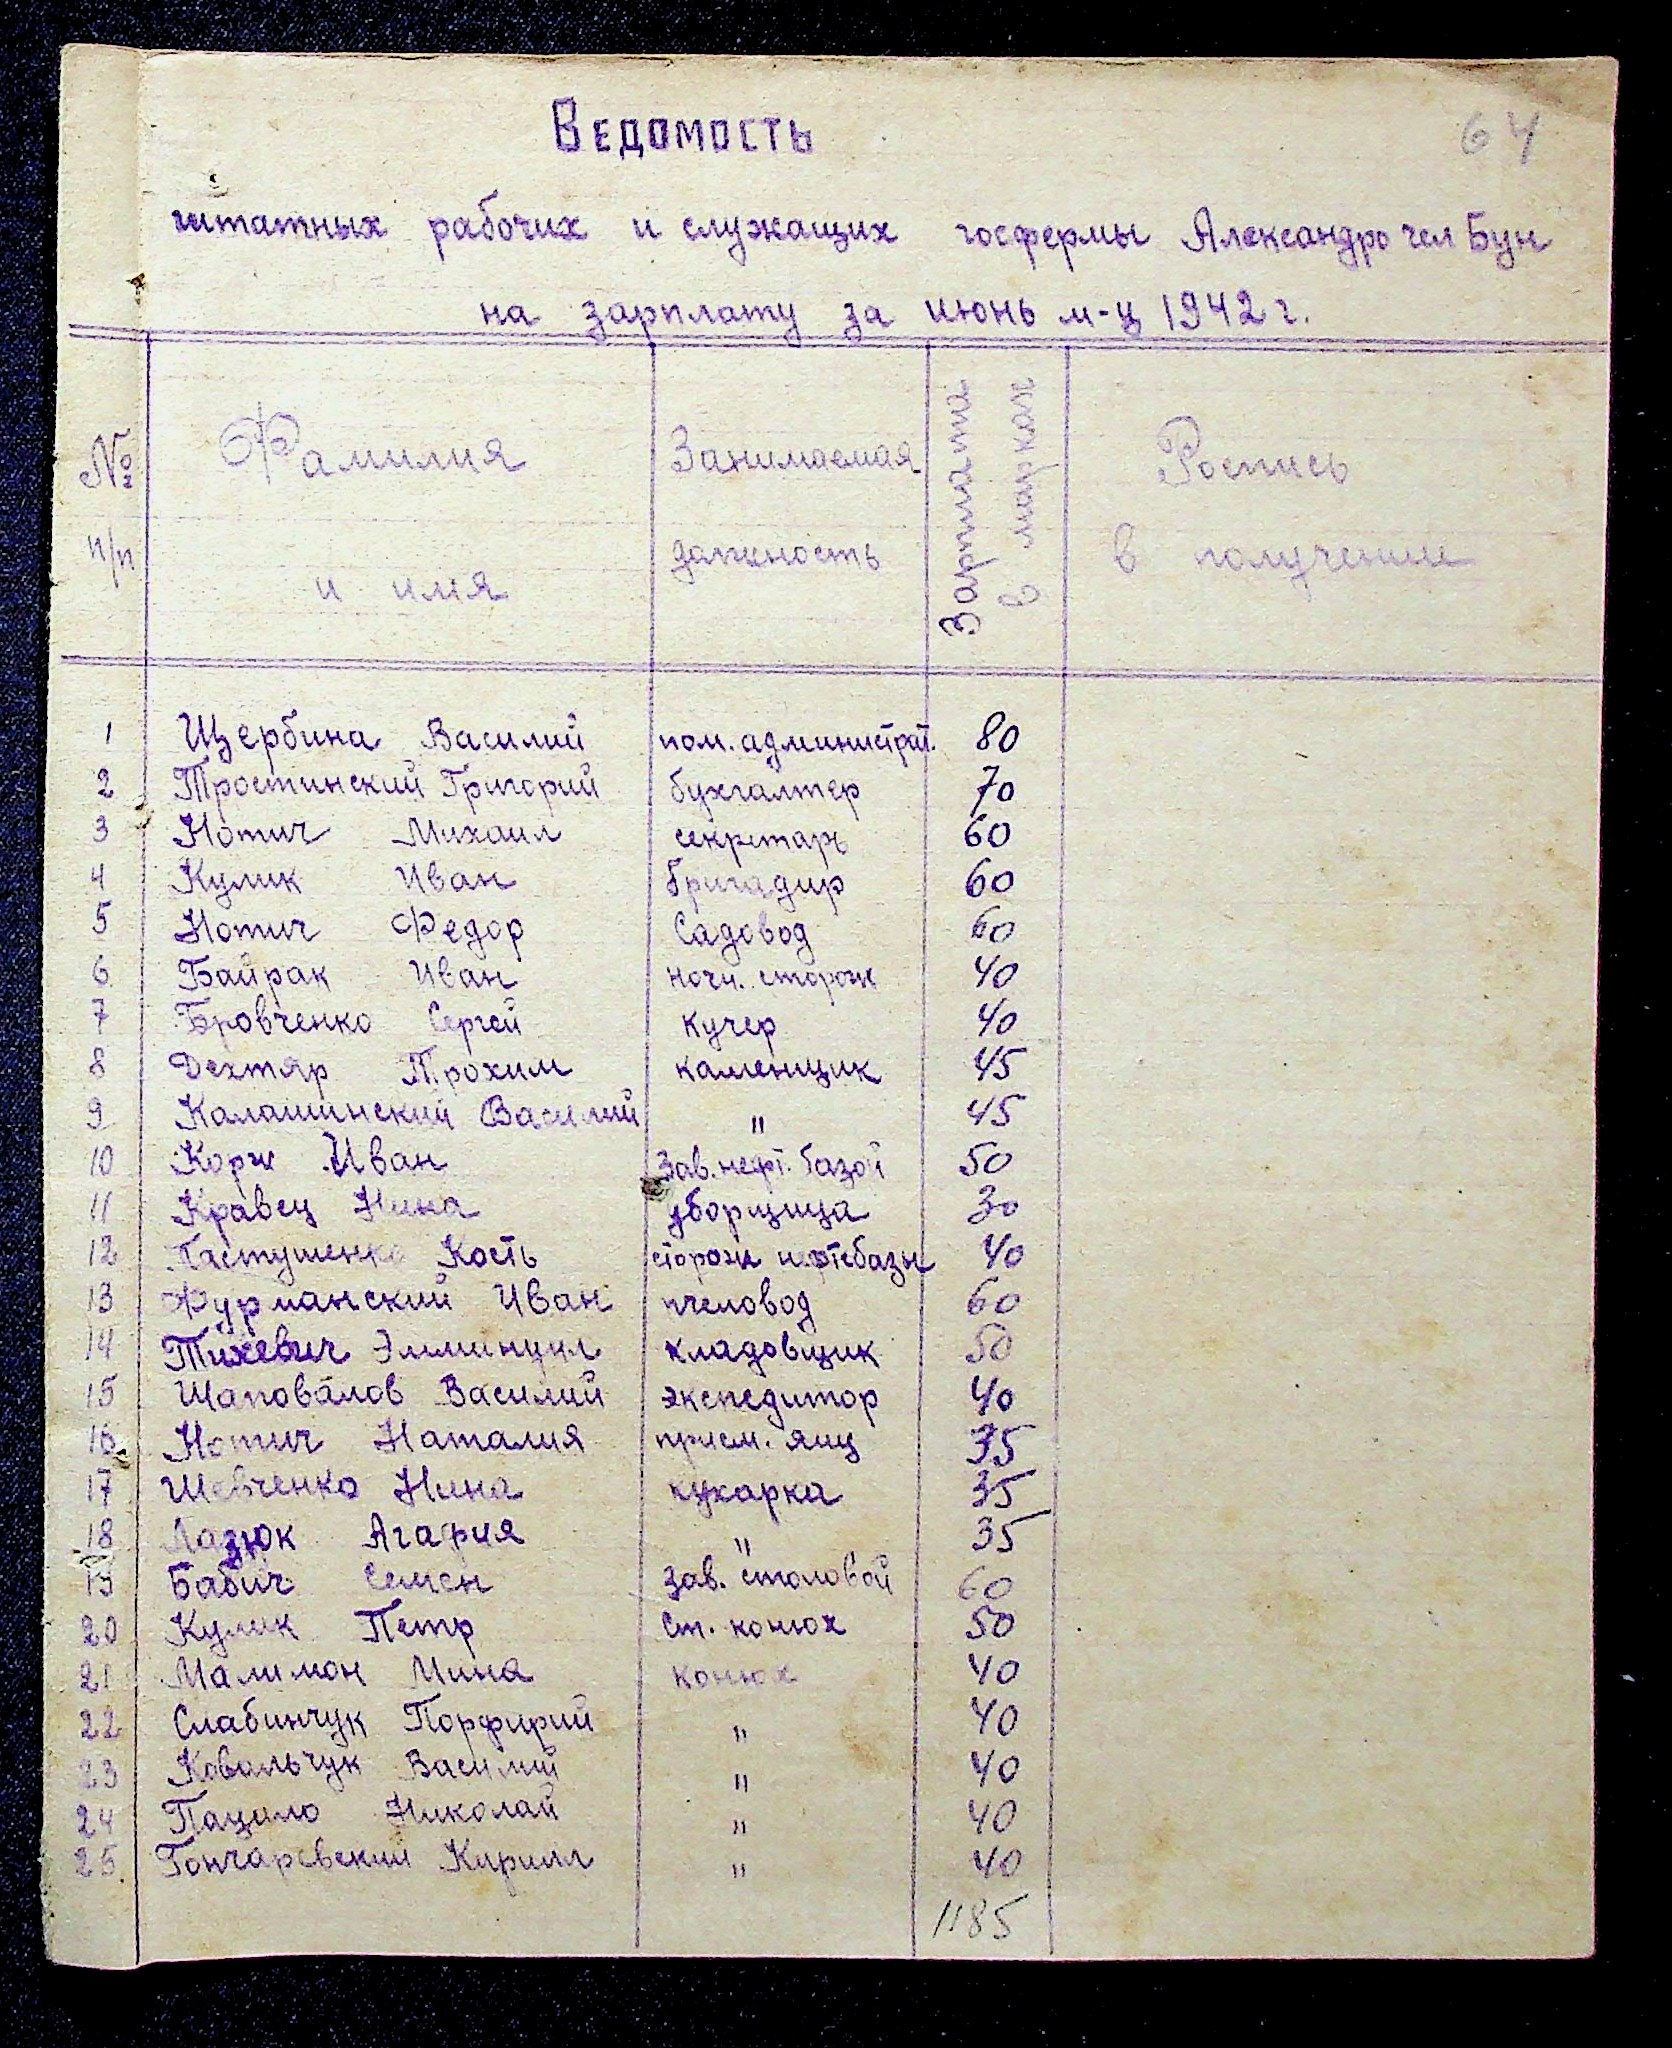 64
Ведомость
штатных рабочих и служащих госфермы Александро чел Бун
на зарплату за июнь м-ц 1942 г.
№ п/п Фамилия и имя Занимаемая должность Зарплата в марках Роспись в получении
1 Щербина Василий пом. администрат. 80
2 Тростинский Григорий бухгалтер 70
3 Нотич Михаил секретарь 60
4 Кулик Иван бригадир 60
5 Нотич Федор Садовод 60
6 Байрак Иван ночн. сторож 40
7 Бровченко Сергей кучер 40
8 Дехтяр Трохим каменщик 45
9 Калашинский Василий " 45
10 Корж Иван Зав. нефт. базой 50
11 Кравец Нина уборщица 30
12 Пастушенко Кость сторож нефтебазы 40
13 Фурманский Иван пчеловод 60
14 Тихевич Эммануил кладовщик 50
15 Шаповалов Василий экспедитор 40
16 Нотич Наталия прием. яиц 35
17 Шевченко Нина кухарка 35
18 Лазюк Агафия " 35
19 Бабич Семен зав. столовой 60
20 Кулик Петр Ст. конюх 50
21 Малимон Мина конюх 40
22 Слабинчук Порфирий " 40
23 Ковальчук Василий " 40
24 Пацало Николай " 40
25 Гончаревский Кирилл " 40
1185